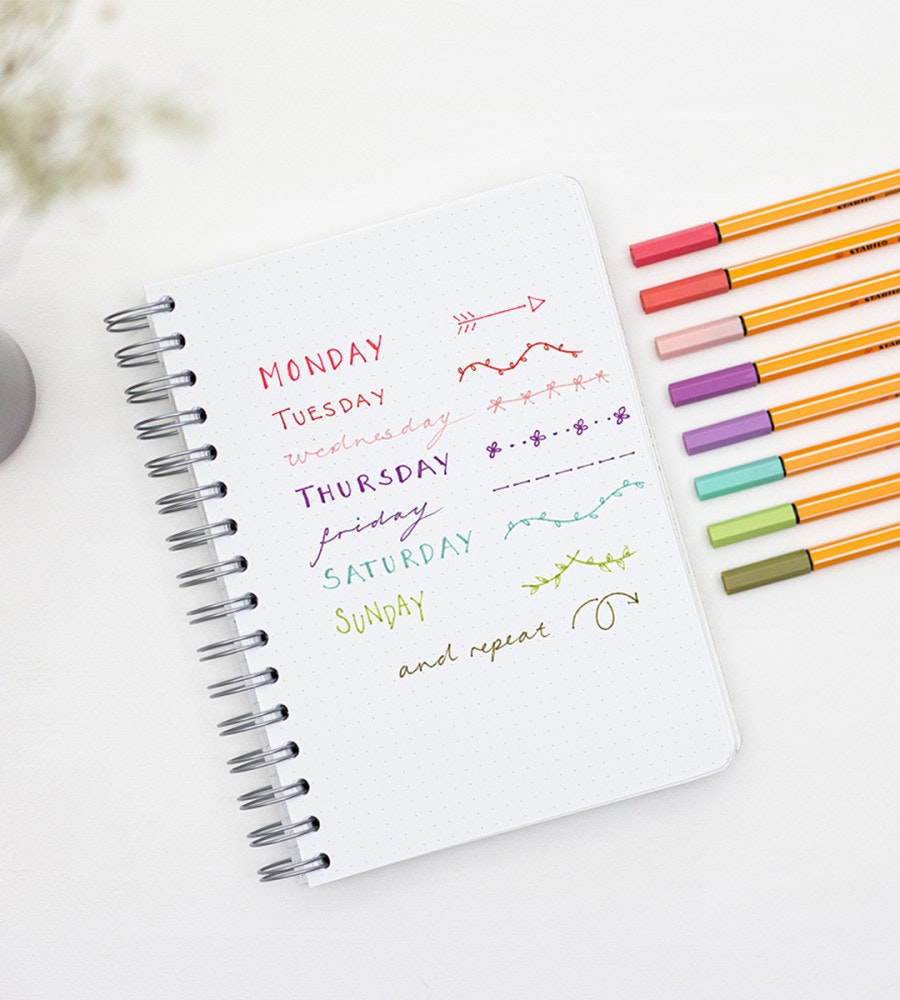 MONDAY
TUESDAY
wednesday
THURSDAY
friday
SATURDAY
SUNDAY
and repeat
STABILO
STABILO
STABILO
STABILO